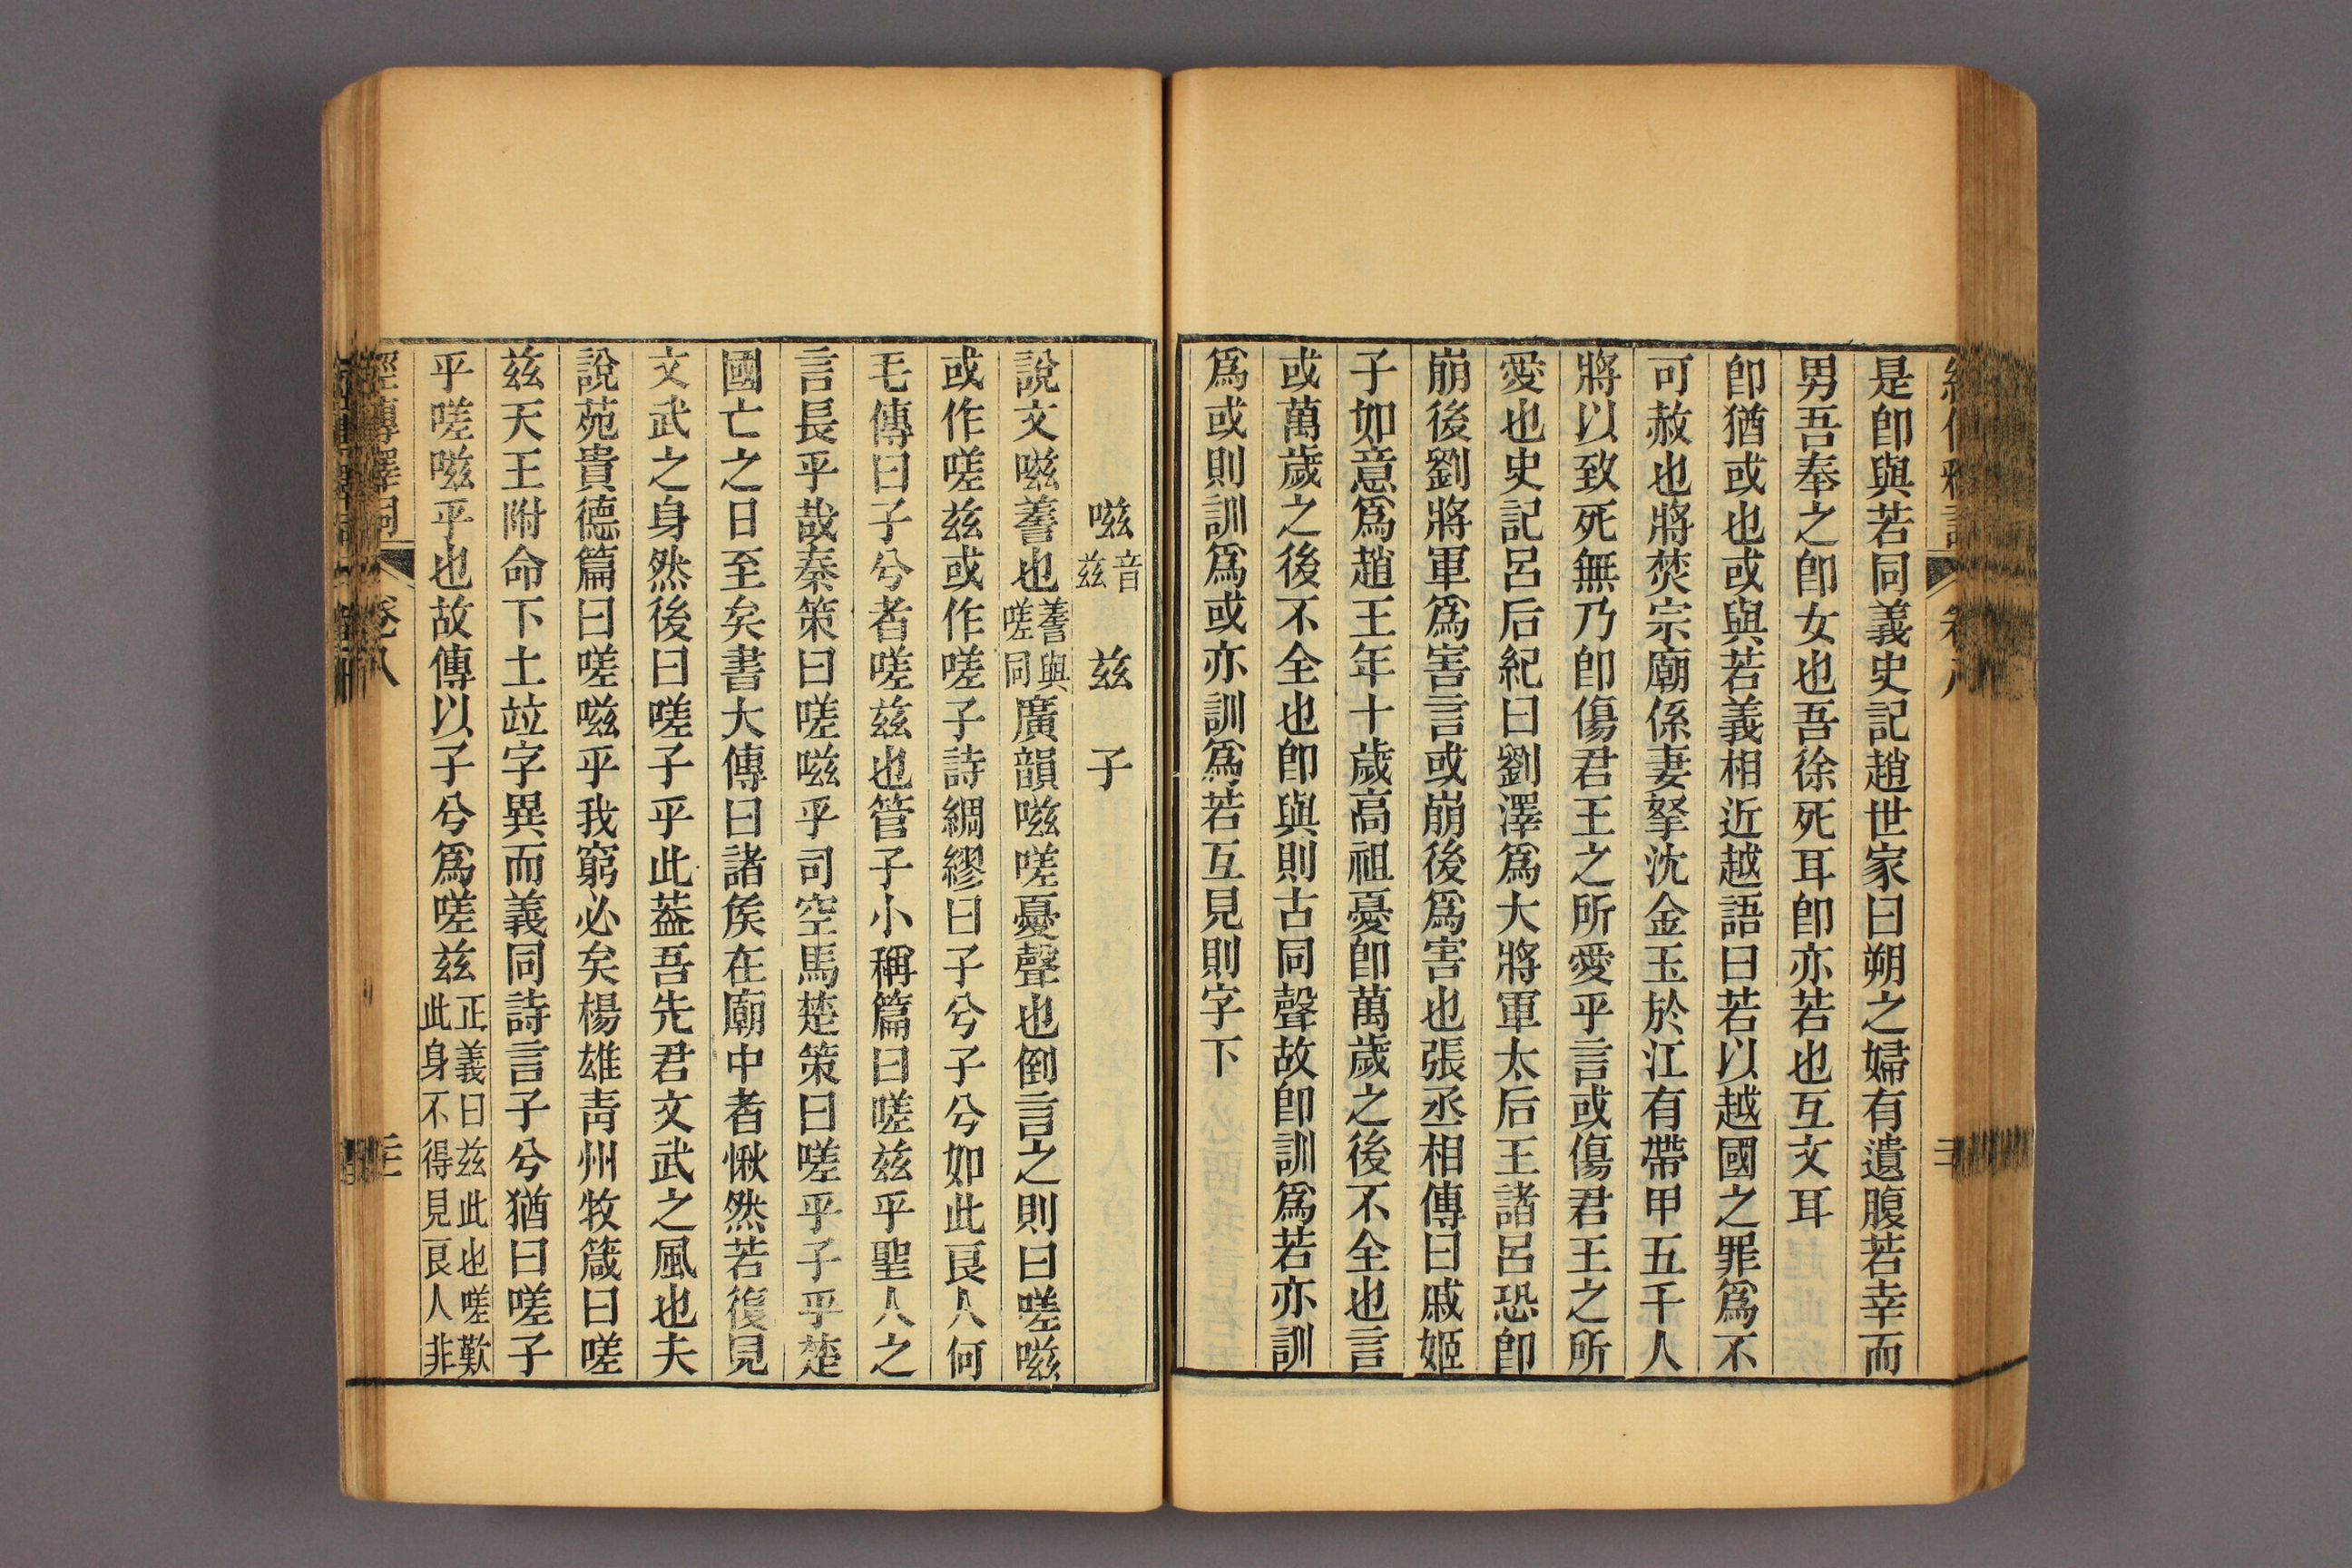 是卽與若同義史記趙世家曰朔之婦有遺腹若幸而
男吾奉之卽女也吾徐死耳卽亦若也互文耳
卽猶或也或與若義相近越語曰若以越國之罪爲不
可赦也將焚宗廟係妻孥沈金玉於江有帶甲五千人
將以致死無乃卽傷君王之所愛乎言或傷君王之所
愛也史記呂后紀曰劉澤爲大將軍太后王諸呂恐卽
崩後劉將軍爲害言或崩後爲害也張丞相傳曰戚姬
子如意爲趙王年十歲高祖憂卽萬歲之後不全也言
或萬歲之後不全也卽與則古同聲故卽訓爲若亦訓
爲或則訓爲或亦訓爲若互見則字下
嗞音兹 兹 子
說文嗞𧪘也𧪘與嗟同廣韻嗞嗟憂聲也倒言之則曰嗟嗞
或作嗟兹或作嗟子詩綢繆曰子兮子兮如此良人何
毛傳曰子兮者嗟兹也管子小稱篇曰嗟兹乎聖人之
言長乎哉秦策曰嗟嗞乎司空馬楚策曰嗟乎子乎楚
國亡之日至矣書大傳曰諸矦在廟中者愀然若復見
文武之身然後曰嗟子乎此葢吾先君文武之風也夫
說苑貴德篇曰嗟嗞乎我窮必矣楊雄靑州牧箴曰嗟
兹天王附命下土竝字異而義同詩言子兮猶曰嗟子
乎嗟嗞乎也故傳以子兮爲嗟兹正義曰兹此也嗟歎此身不得見良人非
經傳釋詞 卷八